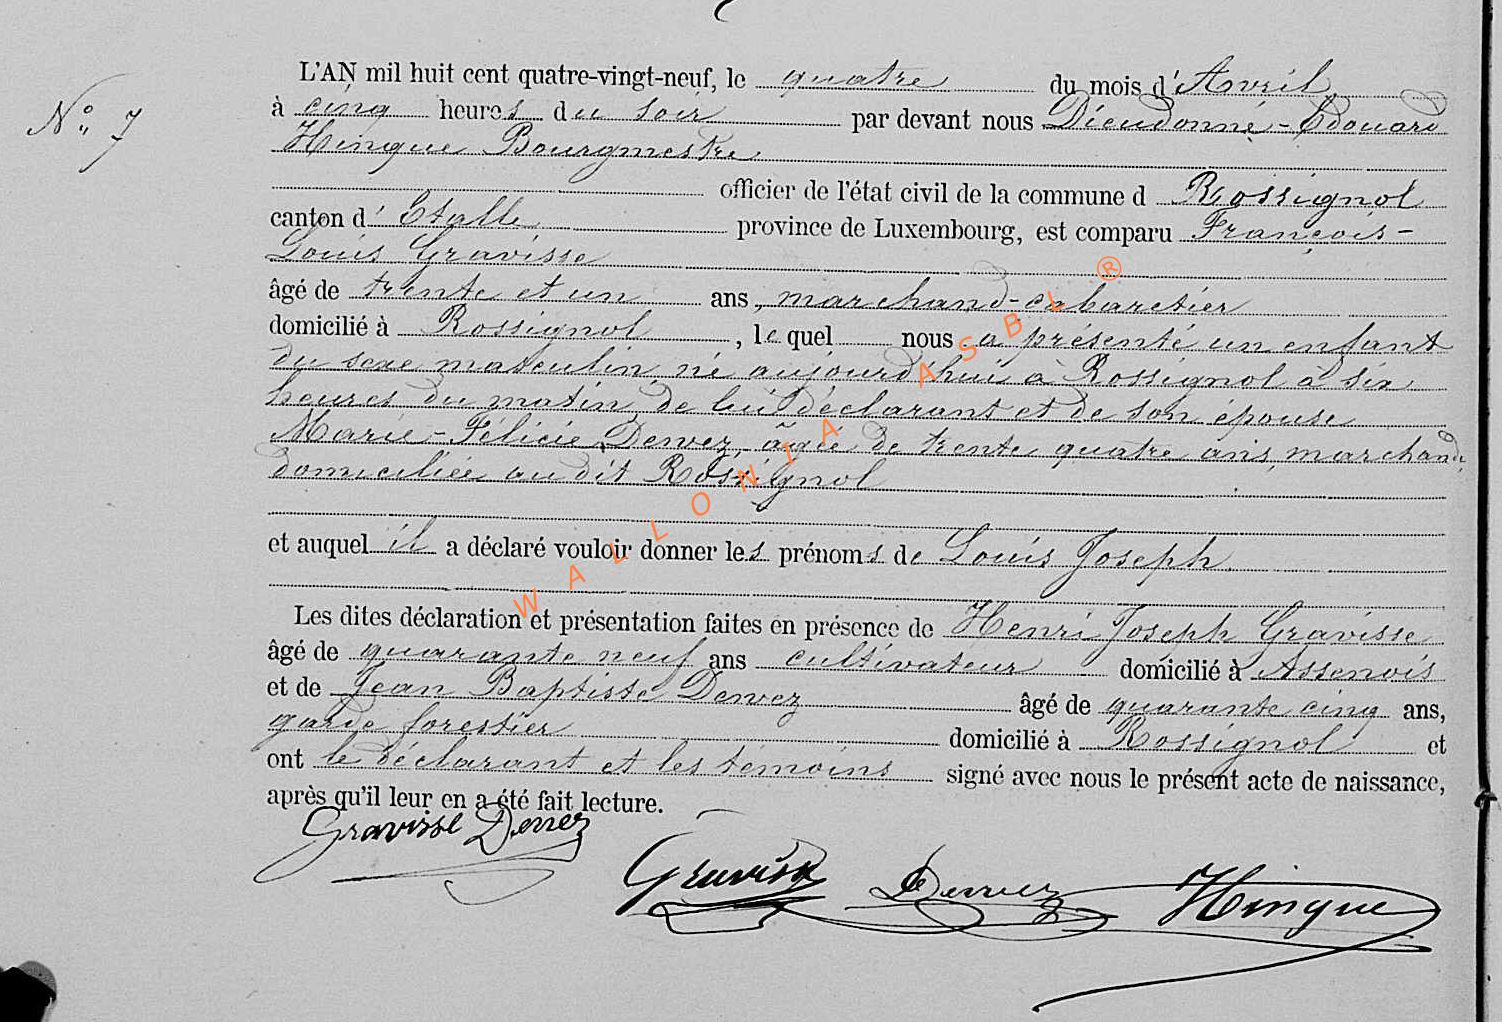 N° 7
L'AN mil huit cent quatre-vingt-neuf, le quatre du mois d'Avril
à cinq heures du soir par devant nous Dieudonné-Edouard
Hinque Bourgmestre
officier de l'état civil de la commune d Rossignol
canton d'Etalle province de Luxembourg, est comparu François-
Louis Gravisse
âgé de trente et un ans, marchand-cabaretier
domicilié à Rossignol, le quel nous a présenté un enfant
du sexe masculin, né aujourd'hui à Rossignol à six
heures du matin, de lui déclarant et de son épouse
Marie-Félicie Dewez, âgée de trente quatre ans, marchande,
domiciliée au dit Rossignol
et auquel il a déclaré vouloir donner les prénoms de Louis Joseph
Les dites déclaration et présentation faites en présence de Henri Joseph Gravisse
âgé de quarante neuf ans cultivateur domicilié à Assenois
et de Jean Baptiste Dewez âgé de quarante cinq ans,
garde forestier domicilié à Rossignol et
ont le déclarant et les témoins signé avec nous le présent acte de naissance,
après qu'il leur en a été fait lecture.
Gravisse Dewez
Gravisse Dewez Hinque
WALLONIA ASBL ®